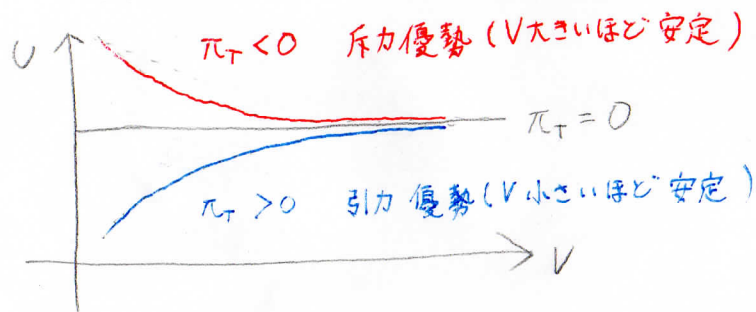 U
π_T < 0 斥力優勢 (V大きいほど安定)
π_T = 0
π_T > 0 引力優勢 (V小さいほど安定)
V